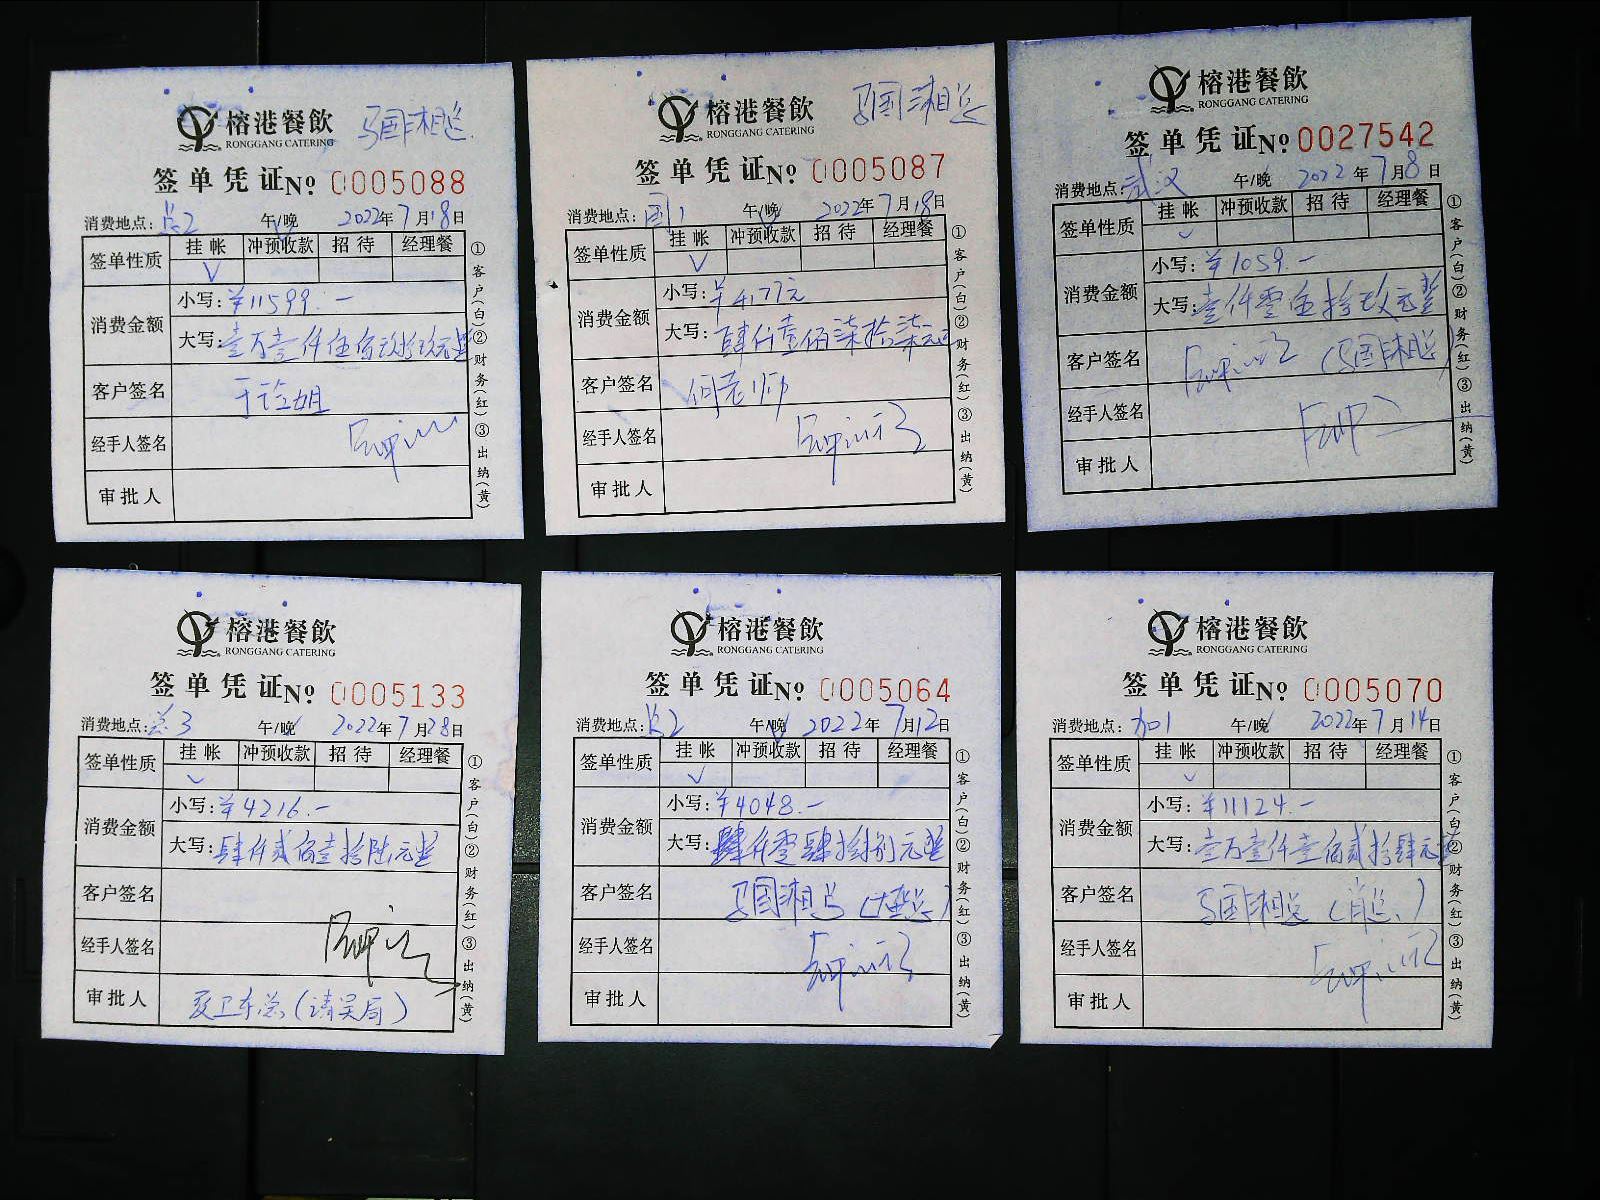 榕港餐飲 马国湘总
RONGGANG CATERING
签单凭证No 0005088
消费地点: 总2 午/晚 2022年7月18日
签单性质 挂帐 冲预收款 招待 经理餐
√
消费金额 小写: ¥11599.-
大写: 壹万壹仟伍佰玖拾玖元整
客户签名
经手人签名
审批人
①客户(白)②财务(红)③出纳(黄)
榕港餐飲 马国湘总
RONGGANG CATERING
签单凭证No 0005087
消费地点: 国1 午/晚 2022年7月18日
签单性质 挂帐 冲预收款 招待 经理餐
√
消费金额 小写: ¥4177元
大写: 肆仟壹佰柒拾柒元
客户签名 何老师
经手人签名
审批人
①客户(白)②财务(红)③出纳(黄)
榕港餐飲
RONGGANG CATERING
签单凭证No 0027542
消费地点: 武汉 午/晚 2022年7月8日
签单性质 挂帐 冲预收款 招待 经理餐
√
消费金额 小写: ¥1059.-
大写: 壹仟零伍拾玖元整
客户签名 (马国湘总)
经手人签名
审批人
①客户(白)②财务(红)③出纳(黄)
榕港餐飲
RONGGANG CATERING
签单凭证No 0005133
消费地点: 总3 午/晚 2022年7月28日
签单性质 挂帐 冲预收款 招待 经理餐
√
消费金额 小写: ¥4216.-
大写: 肆仟贰佰壹拾陆元整
客户签名
经手人签名
审批人 夏卫东总(请吴局)
①客户(白)②财务(红)③出纳(黄)
榕港餐飲
RONGGANG CATERING
签单凭证No 0005064
消费地点: 总2 午/晚 2022年7月12日
签单性质 挂帐 冲预收款 招待 经理餐
√
消费金额 小写: ¥4048.-
大写: 肆仟零肆拾捌元整
客户签名 马国湘总
经手人签名
审批人
①客户(白)②财务(红)③出纳(黄)
榕港餐飲
RONGGANG CATERING
签单凭证No 0005070
消费地点: 加1 午/晚 2022年7月14日
签单性质 挂帐 冲预收款 招待 经理餐
√
消费金额 小写: ¥11124.-
大写: 壹万壹仟壹佰贰拾肆元整
客户签名 马国湘总(肖总)
经手人签名
审批人
①客户(白)②财务(红)③出纳(黄)